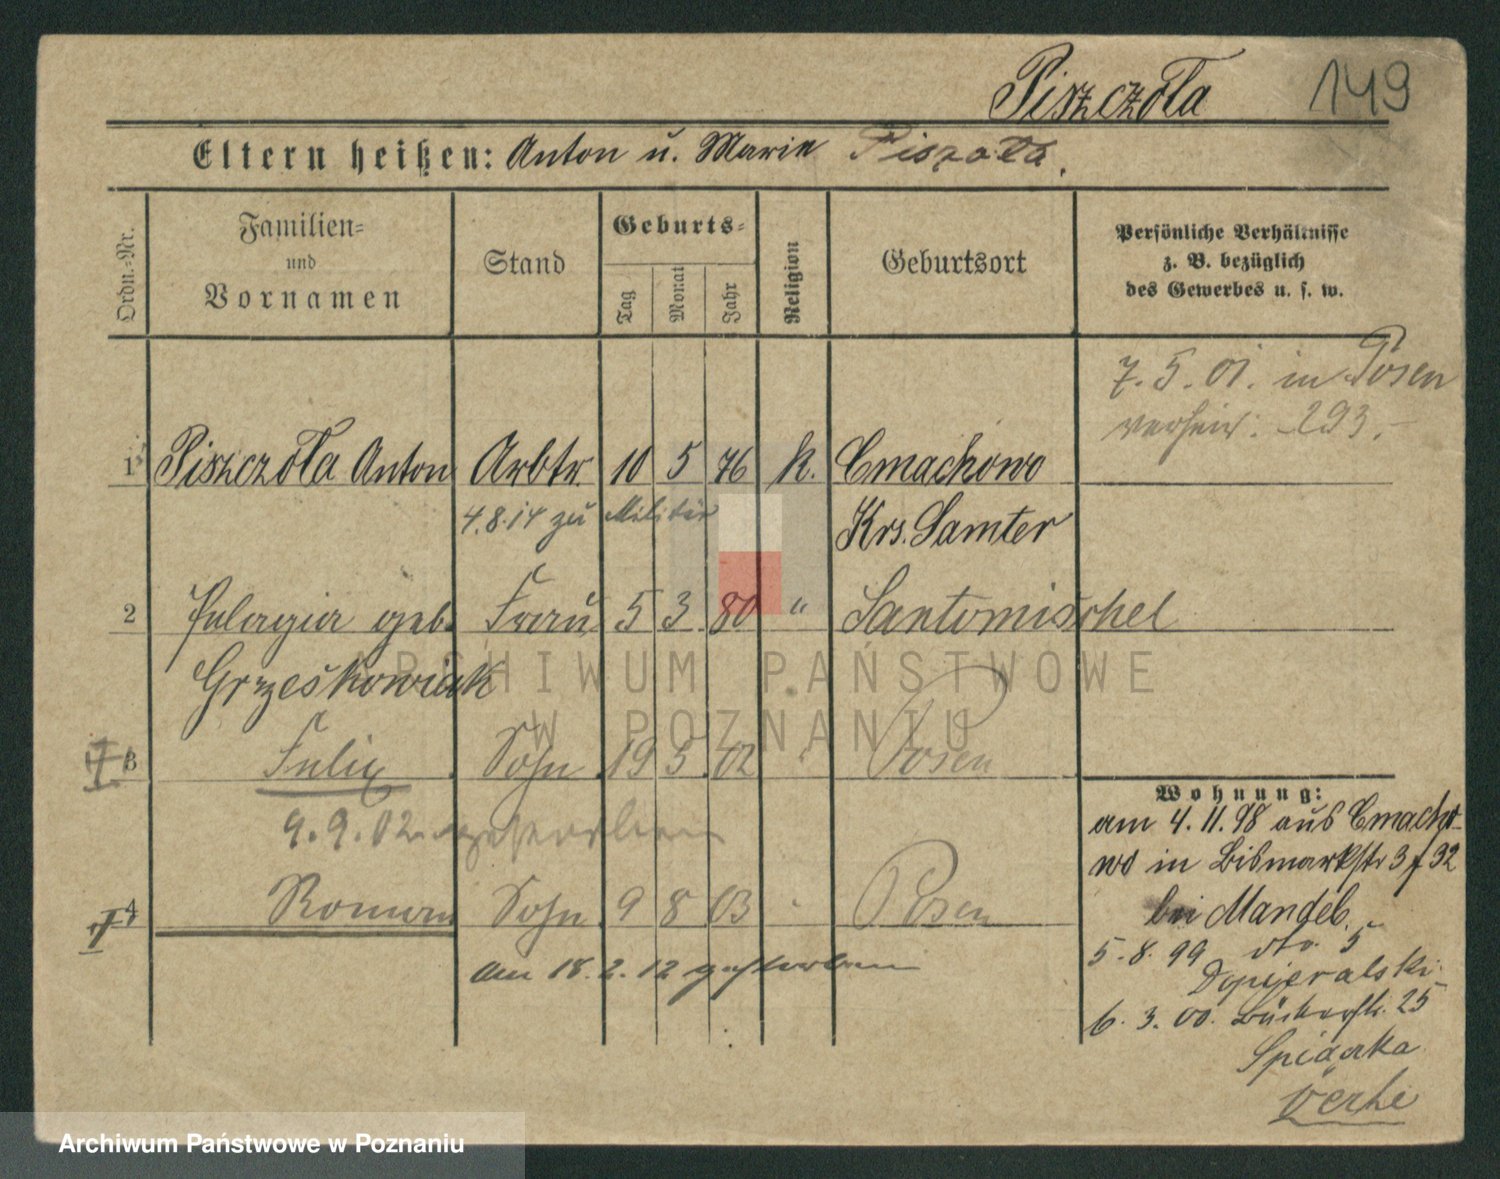 Piszczoła 149
Eltern heißen: Anton u. Marie Piszoła.
Ordn.-Nr.
Familien- und Vornamen
Stand
Geburts-
Tag Monat Jahr
Religion
Geburtsort
Persönliche Verhältnisse
z. B. bezüglich
des Gewerbes u. s. w.
7. 5. 01. in Posen
verheir: 293.-
1 Piszczoła Anton Arbtr. 10 5 76 k. Cmachowo
4.8.14 zu Militär Krs. Samter
2 Pelagia geb. Frau 5 3 80 " Santomischel
Grześkowiak
3 Felix Sohn 19 5 02 " Posen
9. 9. 02 gestorben
4 Roman Sohn 9 8 03 Posen
am 18. 2. 12 gestorben
Wohnung:
am 4. 11. 98 aus Cmacho-
wo in Bismarkstr 3 f 32
bei Mandel.
5. 8. 99 dto 5
Dopieralski
6. 3. 00. Bäckerstr. 25
Spiączka
ARCHIWUM PAŃSTWOWE
W POZNANIU
Archiwum Państwowe w Poznaniu